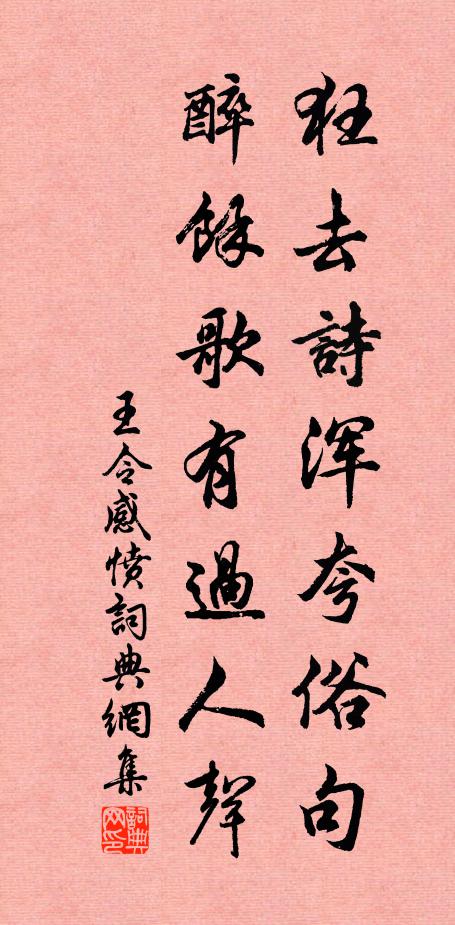 狂去詩渾夸俗句
醉餘歌有過人聲
王令感憤詞典網集
詞典网印